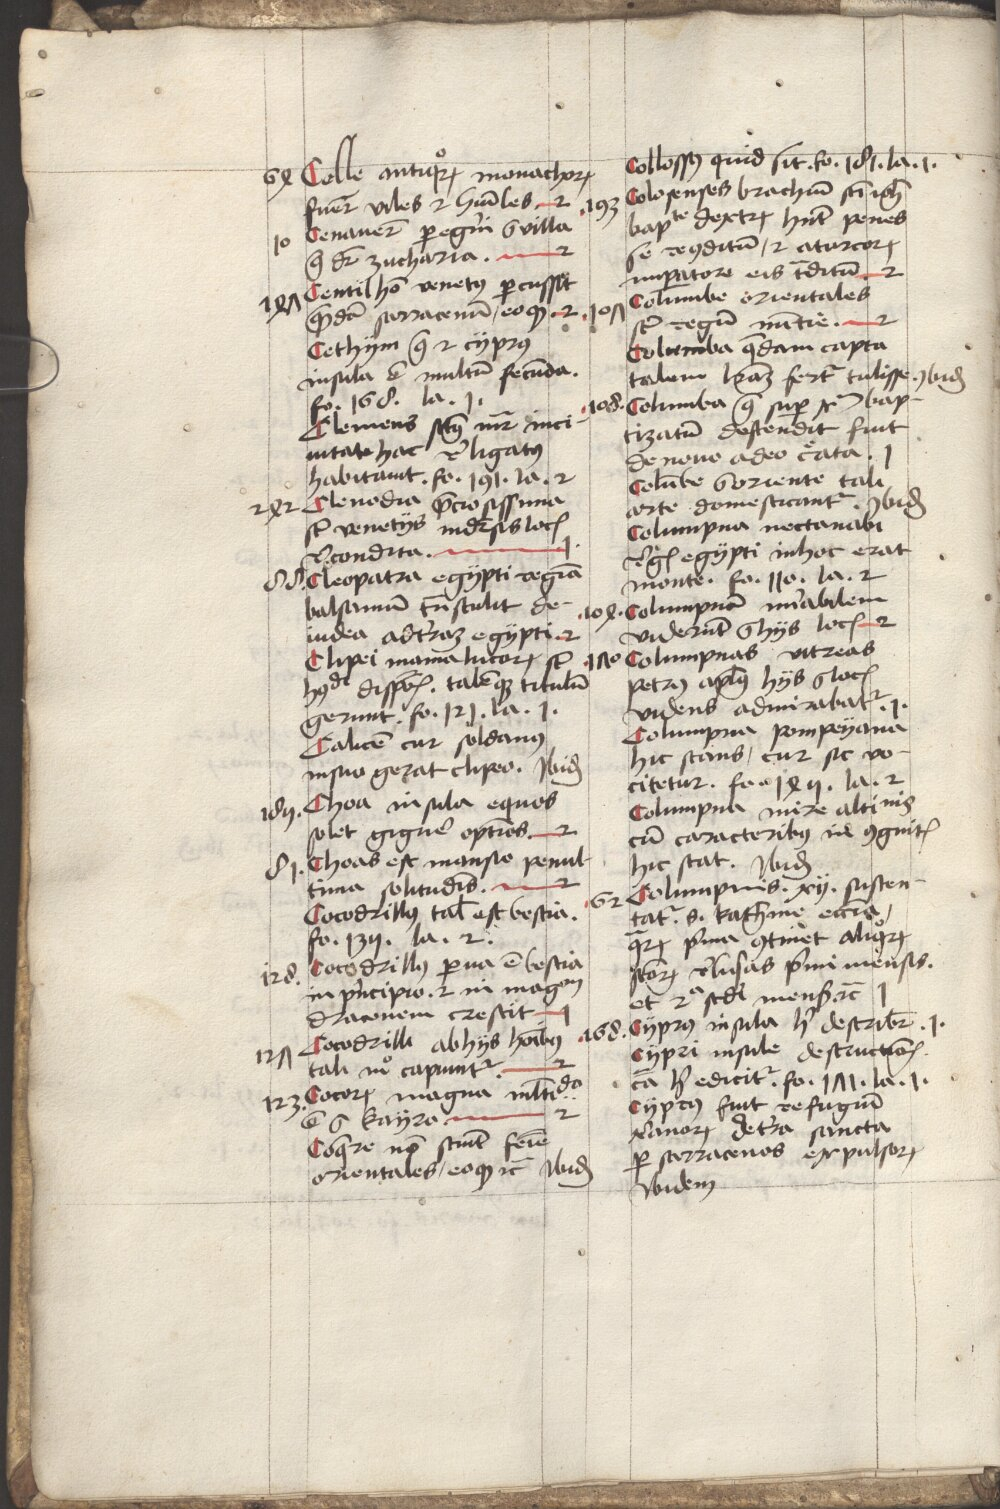 64 Celle antiquorum monachorum
fuerunt viles et humiles 2
10 Cenaverunt peregrini in villa
que dicitur zucharia. 2
147 Gentilhom venetus percussit
quendam sarracenum, eoque 2
Cethym que et cyprus
insula est multum fecunda.
fo. 168. la. 1.
Clemens sextus in
vitate hac religatus
habitavit. fo. 191. la. 2
242 Clenodia preciosissima
sunt venetijs in diversis locis
recondita. 1.
88. Cleopatra egypti regina
balsamum transtulit de
iudea ad terram egypti 2
Clipei mamalucorum sunt
huiusmodi dispositionis. talemque titulum
gerunt. fo. 121. la. 1.
Calicem cur soldanus
in suo gerat clipeo. Ibidem
182. Choa insula equos
solet gignere optimos. 2
81. Choas est mansio penul
tima solitudinis. 2
Cocodrillus talis est bestia.
fo. 132. la. 2.
128. Cocodrillus parva est bestia
in principio. et in magnum
draconem crescit 1
127 Cocodrilli ab hijs hominibus
tali modo capiuntur. 2
123. Cocorum magna multitudo
est in kayro 2
Coquere non sciunt fere
orientales, eoque etc Ibidem
Collossus quid sit. fo. 181. la. 1.
193 Colosenses brachium sancti iohannis
baptiste dextrum habent penes
se reconditum, et a turcorum
imperatore eis traditum 2
107 Columbe orientales
sunt regum nuntie. 2
Columba quedam capta
talem literam fertur tulisse. Ibidem
108. Columba que super christum bap-
tizatum descendit fuit
de novo a deo creata. 1
Columbe in oriente tali
arte domesticantur. Ibidem
Columpna nectanabi
regis egypti in hoc erat
monte. fo. 110. la. 2
104. Columpnam mirabilem
viderunt in hijs locis 2
170 Columpnas vitreas
petrus apostolus hijs in locis
videns admirabatur. 1.
Columpna pompeyana
hic stans, cur sic vo-
citetur. fo. 142. la. 2
Columpna mire altitudinis
cum caracteribus incognitis
hic stat. Ibidem
62 Columpnis. xij. susten-
tatur. s. katherine ecclesia,
quarum prima continet aliquorum
sanctorum reliquias primi mensis.
et 2a secundi mensis etc 1
168. Cyprus insula hic describitur. 1.
Cypri insule destructionis
causa hic edicitur. fo. 171. la. 1.
Cyprus fuit refugium
christianorum de terra sancta
per sarracenos expulsorum
Ibidem